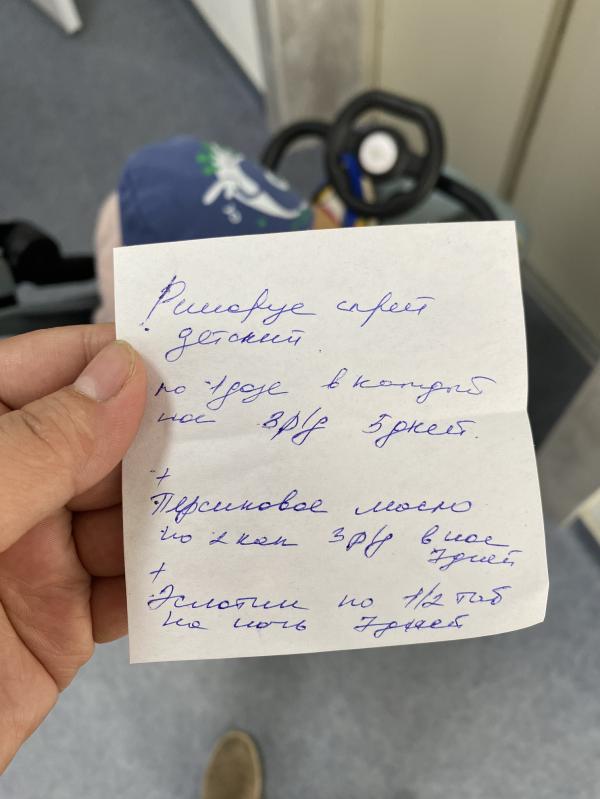 Ринорус спрей
детский
по 1 дозе в каждый
нос 3 р/д 5 дней.
+
Персиковое масло
по 2 кап 3 р/д в нос
7 дней
+
Эслотин по 1/2 таб
на ночь 7 дней